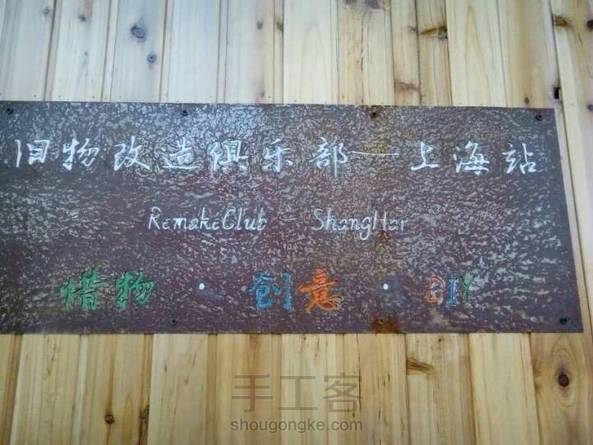 旧物改造俱乐部——上海站
RemakeClub - ShangHai
惜物 · 创意 · DIY
手工客
shougongke.com